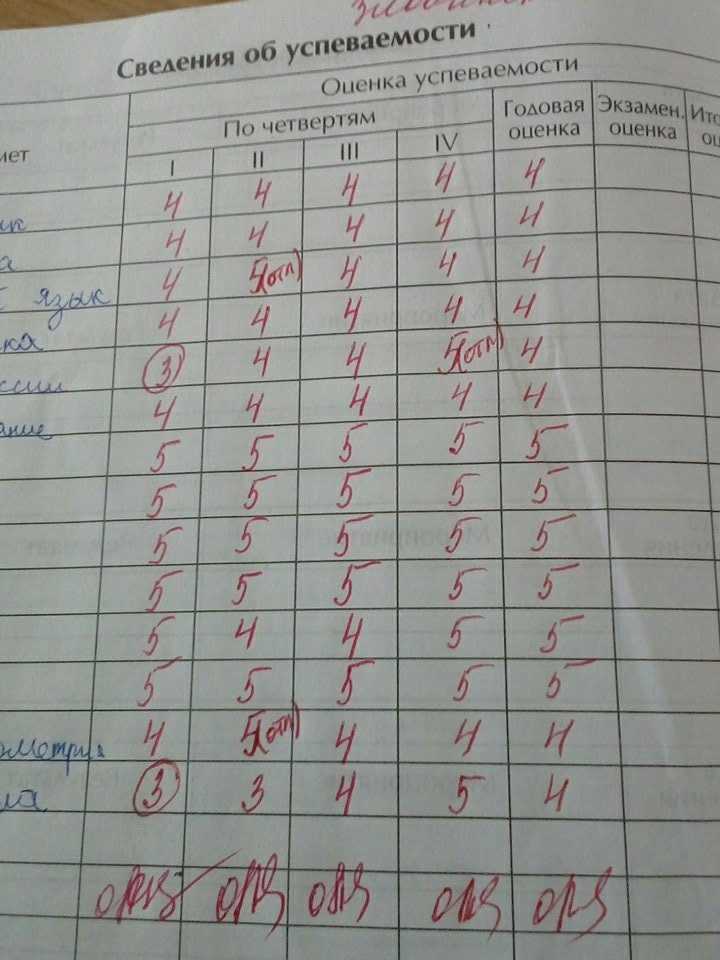 Сведения об успеваемости
Оценка успеваемости
По четвертям Годовая оценка Экзамен. оценка
I II III IV
4 4 4 4 4
4 4 4 4 4
4 5(отл) 4 4 4
язык 4 4 4 4 4
3 4 4 5(отл) 4
4 4 4 4 4
5 5 5 5 5
5 5 5 5 5
5 5 5 5 5
5 5 5 5 5
5 4 4 5 5
5 5 5 5 5
4 5(отл) 4 4 4
3 3 4 5 4